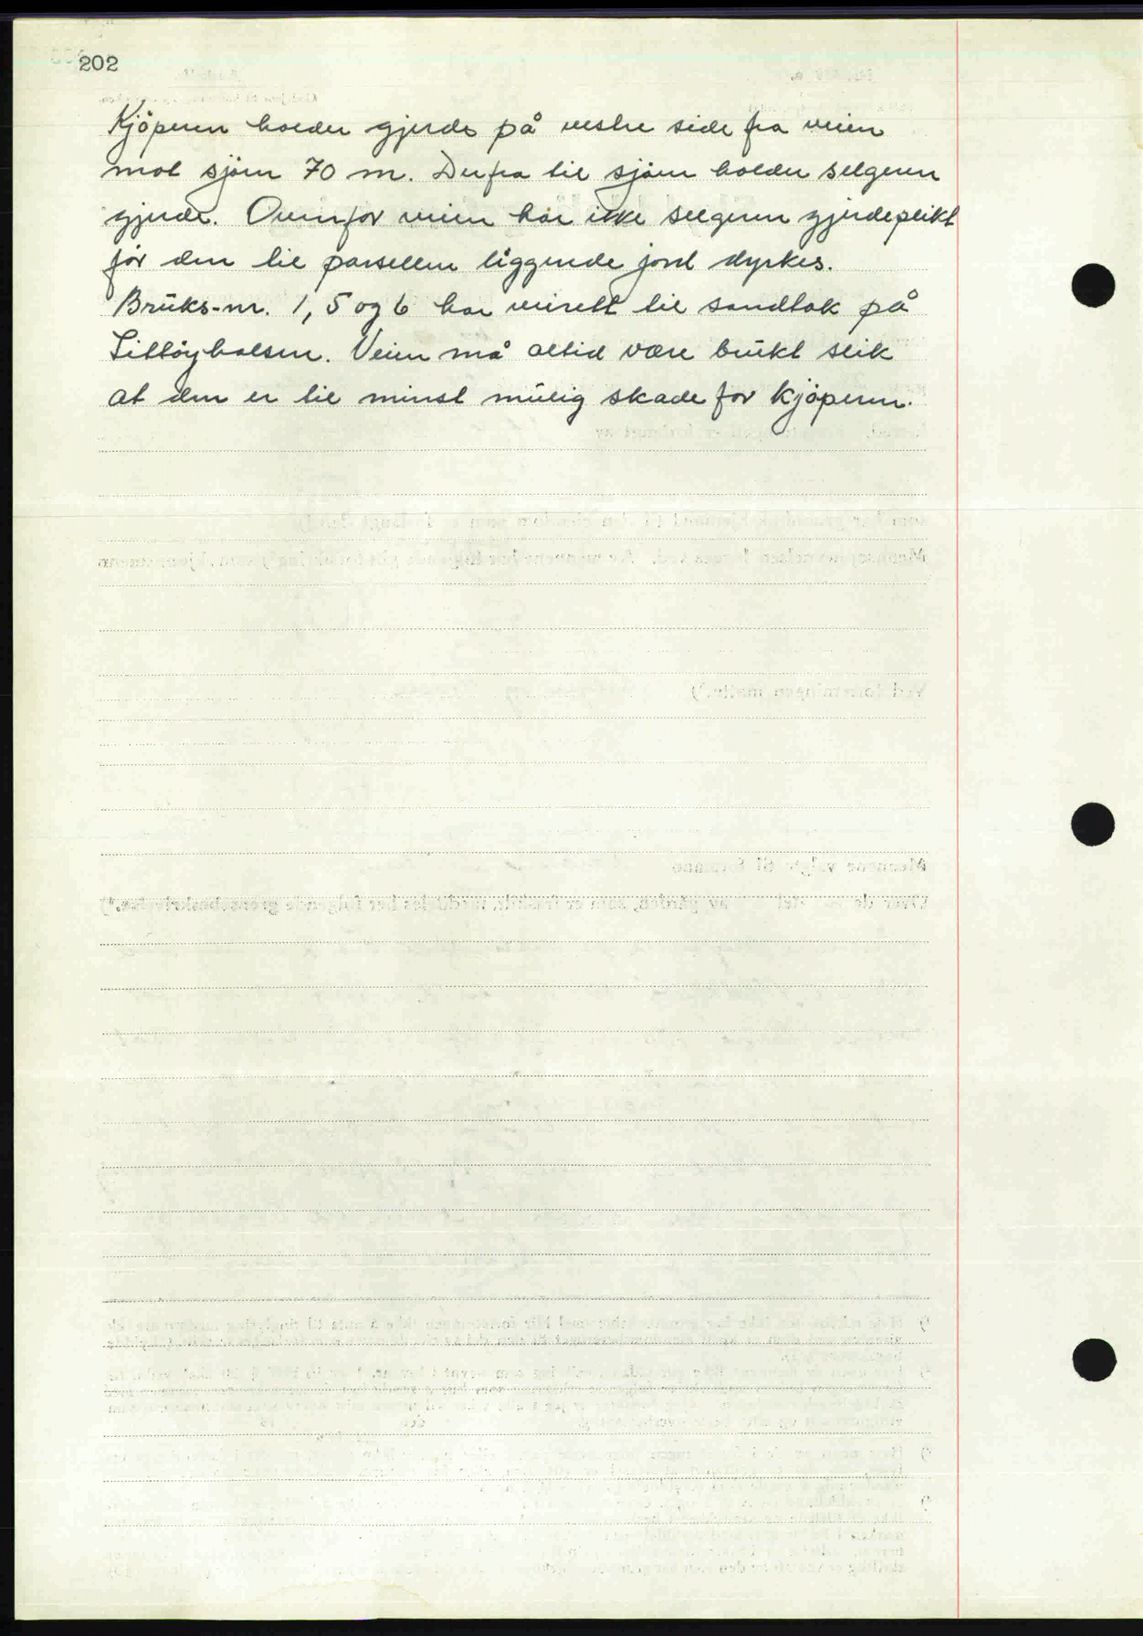 202
Kjöperen holder gjerde på vestre side fra veien
mot sjøen 70 m. Derfra til sjøen holder selgeren
gjerde. Ovenfor veien har ikke selgeren gjerdeplikt
før den til parsellen liggende jord dyrkes.
Brüks-nr. 1, 5 og 6 har veirett til sandtak på
Litlöyholmen. Veien må altid være brükt slik
at den er til minst mülig skade for Kjöperen.